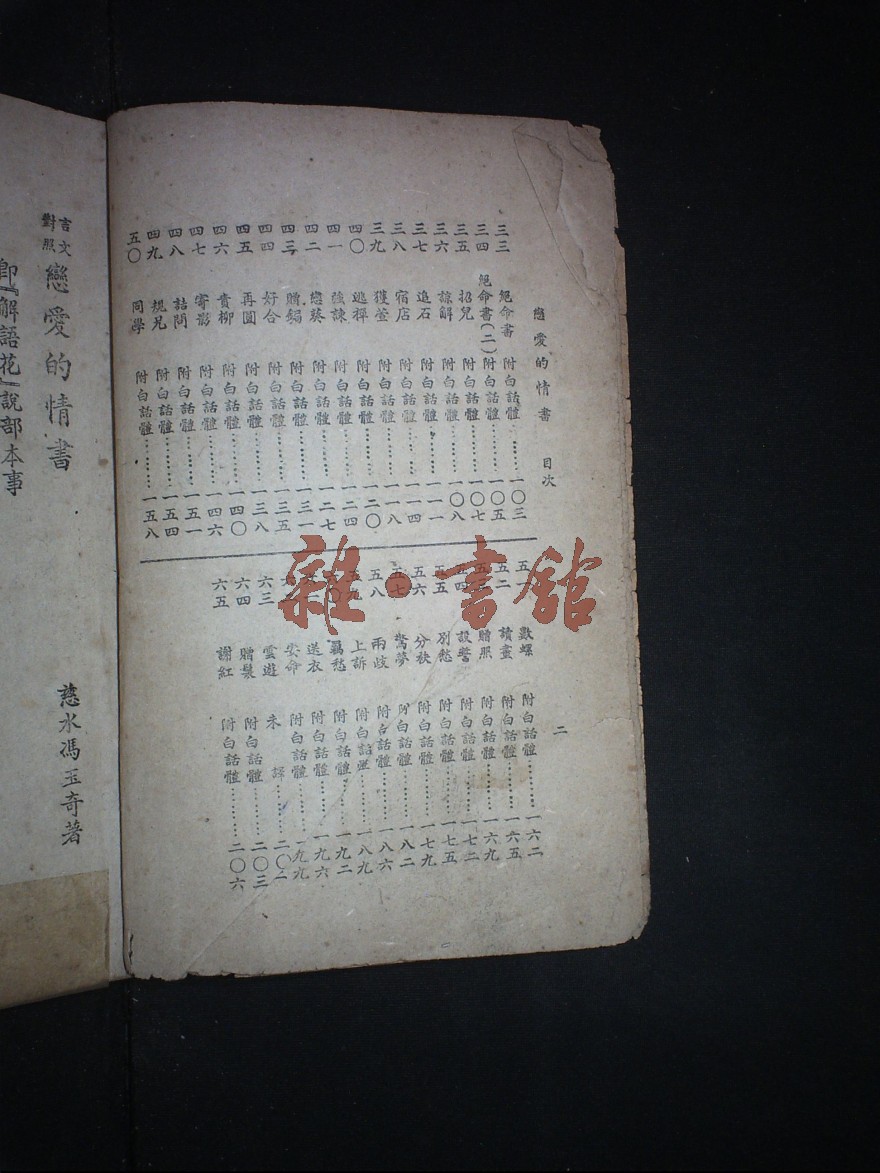 戀愛的情書 目次
三三 絕命書 附白話體………一〇三
三四 絕命書(二) 附白話體………一〇五
三五 招兒 附白話體………一〇七
三六 諒解 附白話體………一〇八
三七 追石 附白話體………一一一
三八 宿店 附白話體………一一四
三九 獲萱 附白話體………一一八
四〇 逃禪 附白話體………一二〇
四一 強諫 附白話體………一二四
四二 戀葵 附白話體………一二七
四三 贈錫 附白話體………一三一
四四 好合 附白話體………一三五
四五 再圓 附白話體………一三八
四六 責柳 附白話體………一四〇
四七 寄影 附白話體………一四六
四八 詰問 附白話體………一五一
四九 規兄 附白話體………一五四
五〇 同學 附白話體………一五八
數螺 附白話體………一六二
五二 讀畫 附白話體………一六五
贈照 附白話體………一六九
五四 設誓 附白話體………一七二
五五 別愁 附白話體………一七五
五六 分秋 附白話體………一七九
五七 驚夢 附白話體………一八二
五八 兩歧 附白話體………一八六
上訴 附白話體………一八九
羈愁 附白話體………一九二
送衣 附白話體………一九六
安命 附白話體………一九九
六三 雲遊 未譯………二〇二
六四 贈鬘 附白話體………二〇三
六五 謝紅 附白話體………二〇六
二
言文對照
戀愛的情書
慈水馮玉奇著
即『解語花』說部本事
雜·書館